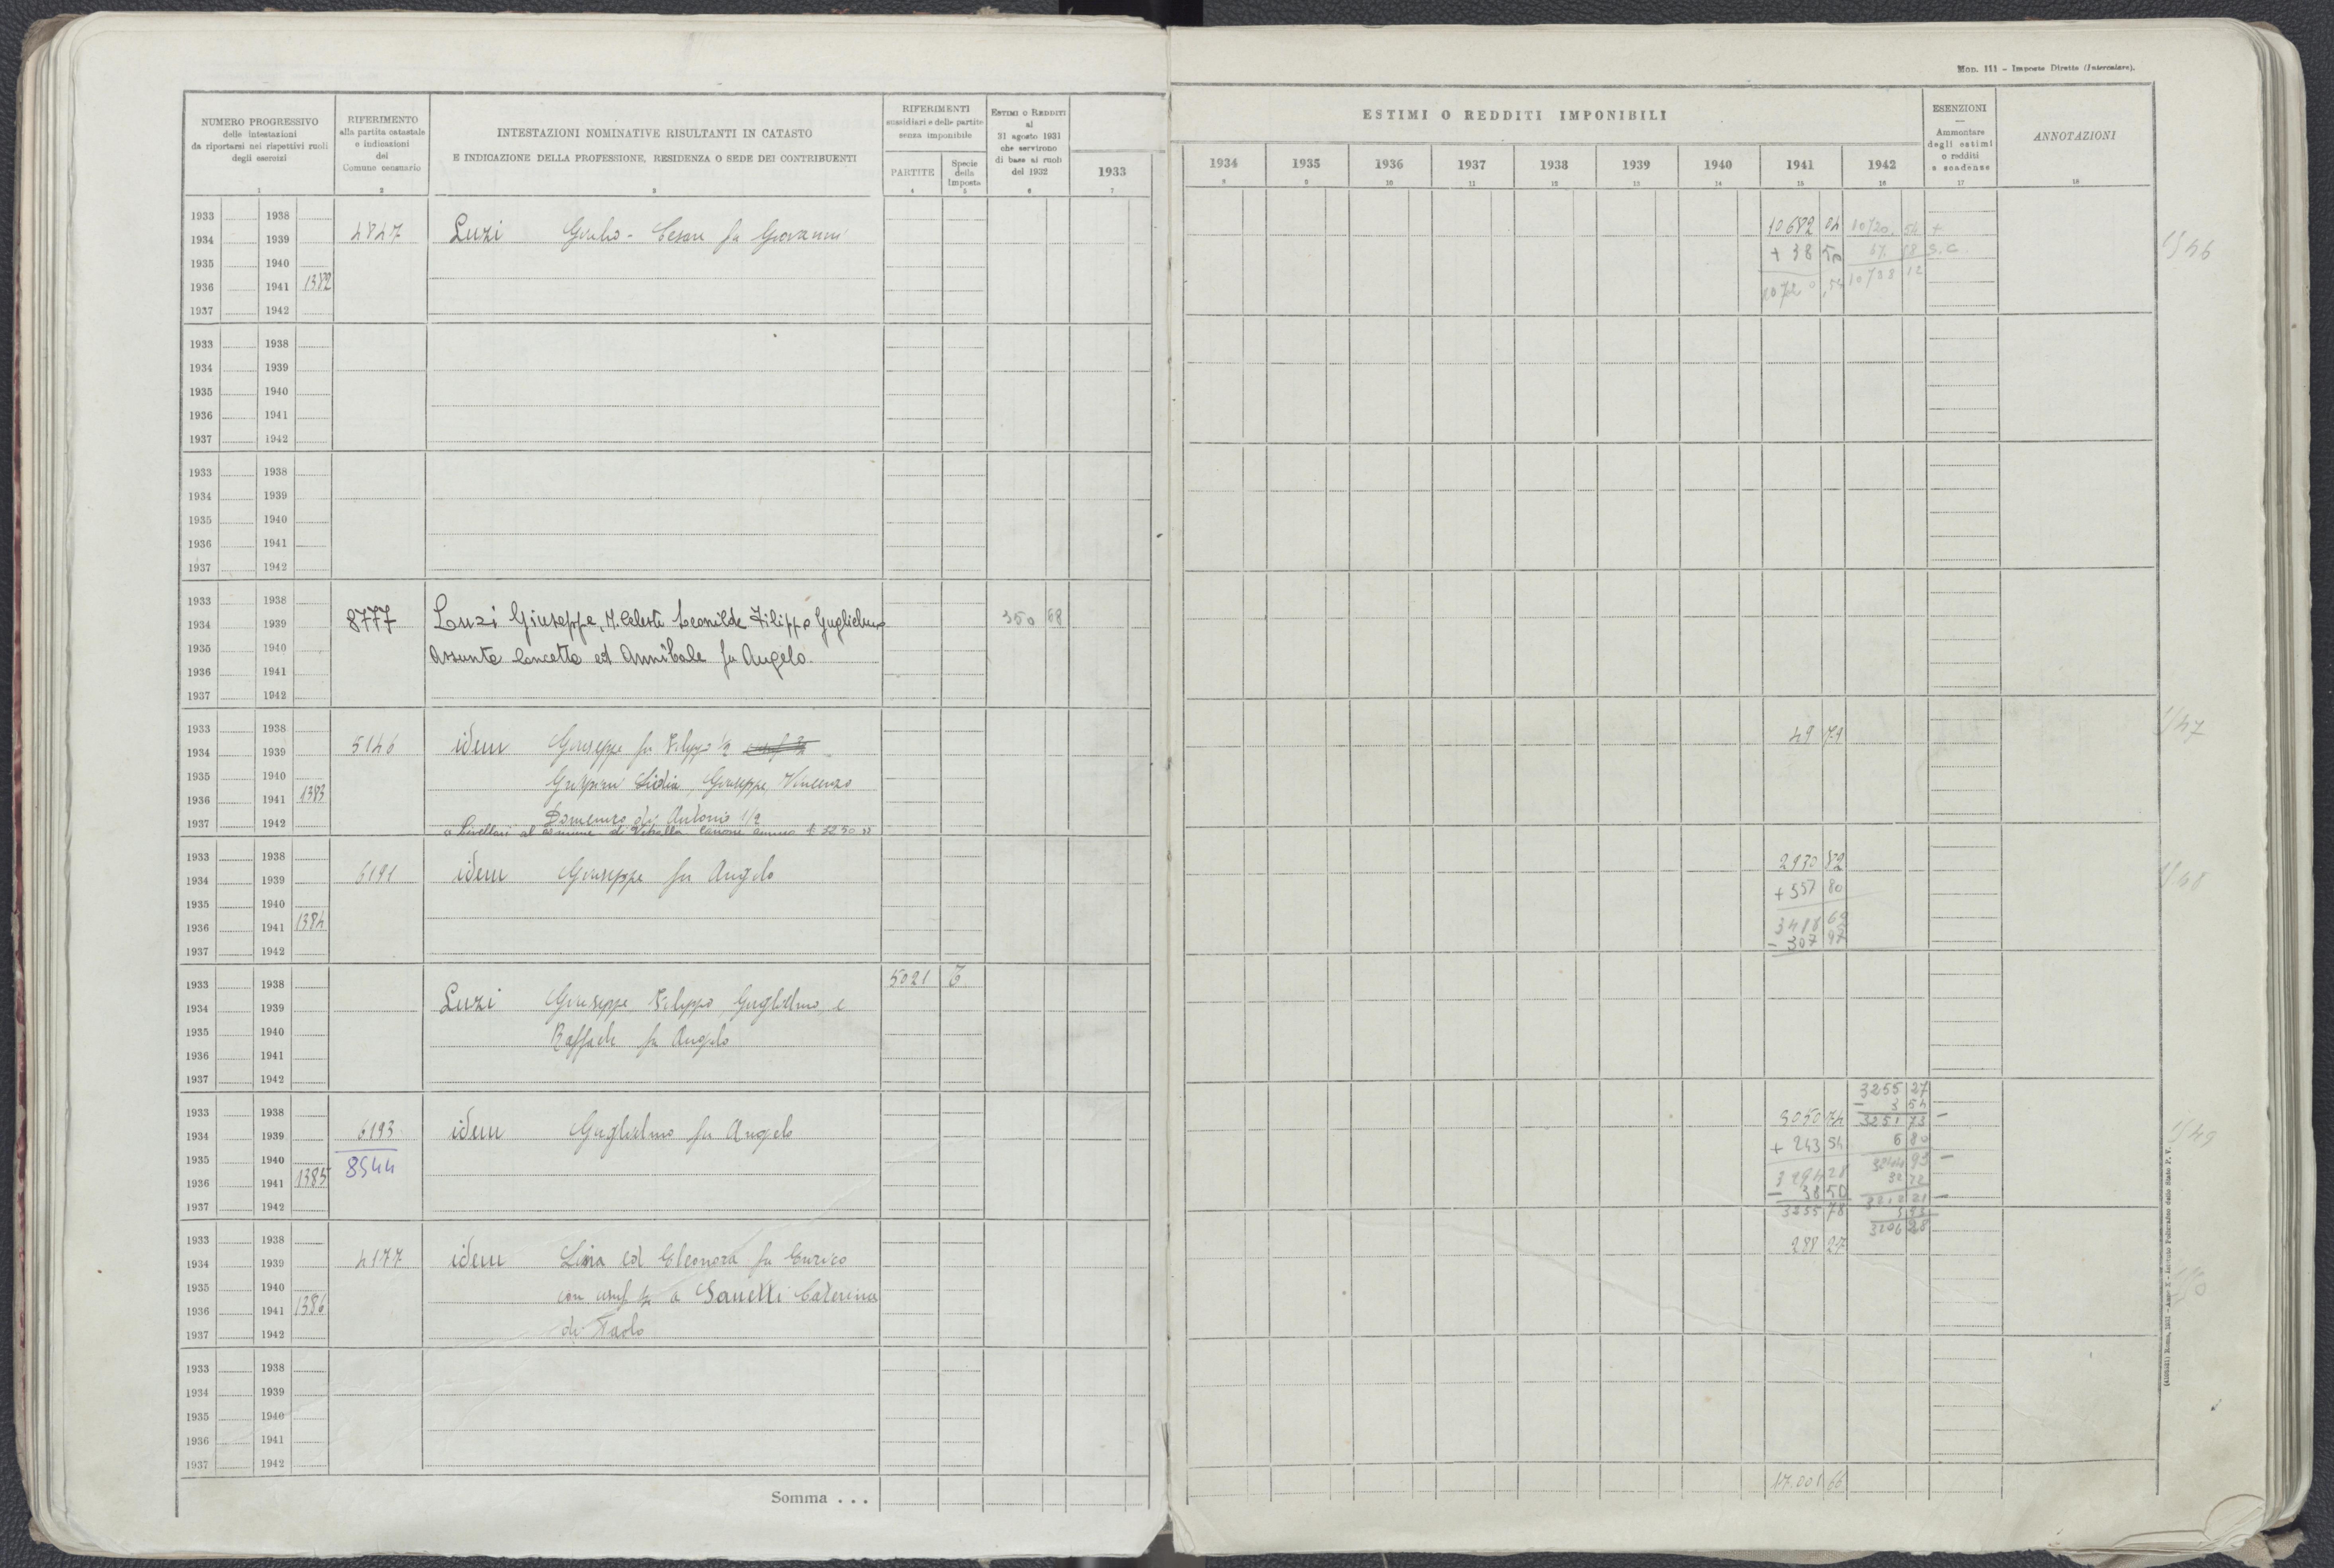 Mod. 111 - Imposte Dirette (Intercalare).
NUMERO PROGRESSIVO
delle intestazioni
da riportarsi nei rispettivi ruoli
degli esercizi
1
RIFERIMENTO
alla partita catastale
e indicazioni
del
Comune censuario
2
INTESTAZIONI NOMINATIVE RISULTANTI IN CATASTO
E INDICAZIONE DELLA PROFESSIONE, RESIDENZA O SEDE DEI CONTRIBUENTI
3
RIFERIMENTI
sussidiari e delle partite
senza imponibile
PARTITE
4
Specie
della
Imposta
5
ESTIMI O REDDITI
al
31 agosto 1931
che servirono
di base ai ruoli
del 1932
6
1933
7
ESTIMI O REDDITI IMPONIBILI
1934 1935 1936 1937 1938 1939 1940 1941 1942
8 9 10 11 12 13 14 15 16
ESENZIONI
—
Ammontare
degli estimi
o redditi
e scadenze
17
ANNOTAZIONI
18
1933 1938
1934 1939 4847 Luzi Giulio - Cesare fu Giovanni 10682 04 10720. 54 +
1935 1940 + 38 50 S.C.
1936 1941 1382 10720,54 10738 12
1937 1942
1933 1938
1934 1939
1935 1940
1936 1941
1937 1942
1933 1938
1934 1939
1935 1940
1936 1941
1937 1942
1933 1938
1934 1939 8777 Luzi Giuseppe, M. Celeste Leonilde Filippo Guglielmo 350 68
1935 1940 Assunta Concetta ed Annibale fu Angelo.
1936 1941
1937 1942
1933 1938
1934 1939 5146 idem Giuseppe fu Filippo 1/2 49 79
1935 1940 Lidia, Giuseppe, Vincenzo
1936 1941 1383
1937 1942 Domenico di Antonio 1/2
livellari al comune di Vetralla canone annuo
1933 1938 2930 82
1934 1939 6191 idem Giuseppe fu Angelo + 557 80
1935 1940
1936 1941 1384 3488 62
1937 1942 - 307 97
1933 1938 5021 T
1934 1939 Luzi Giuseppe, Filippo, Guglielmo, e
1935 1940 Raffaele fu Angelo
1936 1941
1937 1942
3255 27
- 3 54
1933 1938 3050 74 3251 73 -
1934 1939 6193 idem Guglielmo fu Angelo + 243 54 6 80
1935 1940 8544 3294 28 3244 93 -
1936 1941 1385 - 38 50 32 72
1937 1942 3255 78 3212 21 -
3206 28
1933 1938 288 27
1934 1939 4177 idem Lina ed Eleonora fu Enrico
1935 1940 con usuf a Sanetti Caterina
1936 1941 1386
1937 1942 di Paolo
1933 1938
1934 1939
1935 1940
1936 1941
1937 1942
Somma . . . 17.001 66